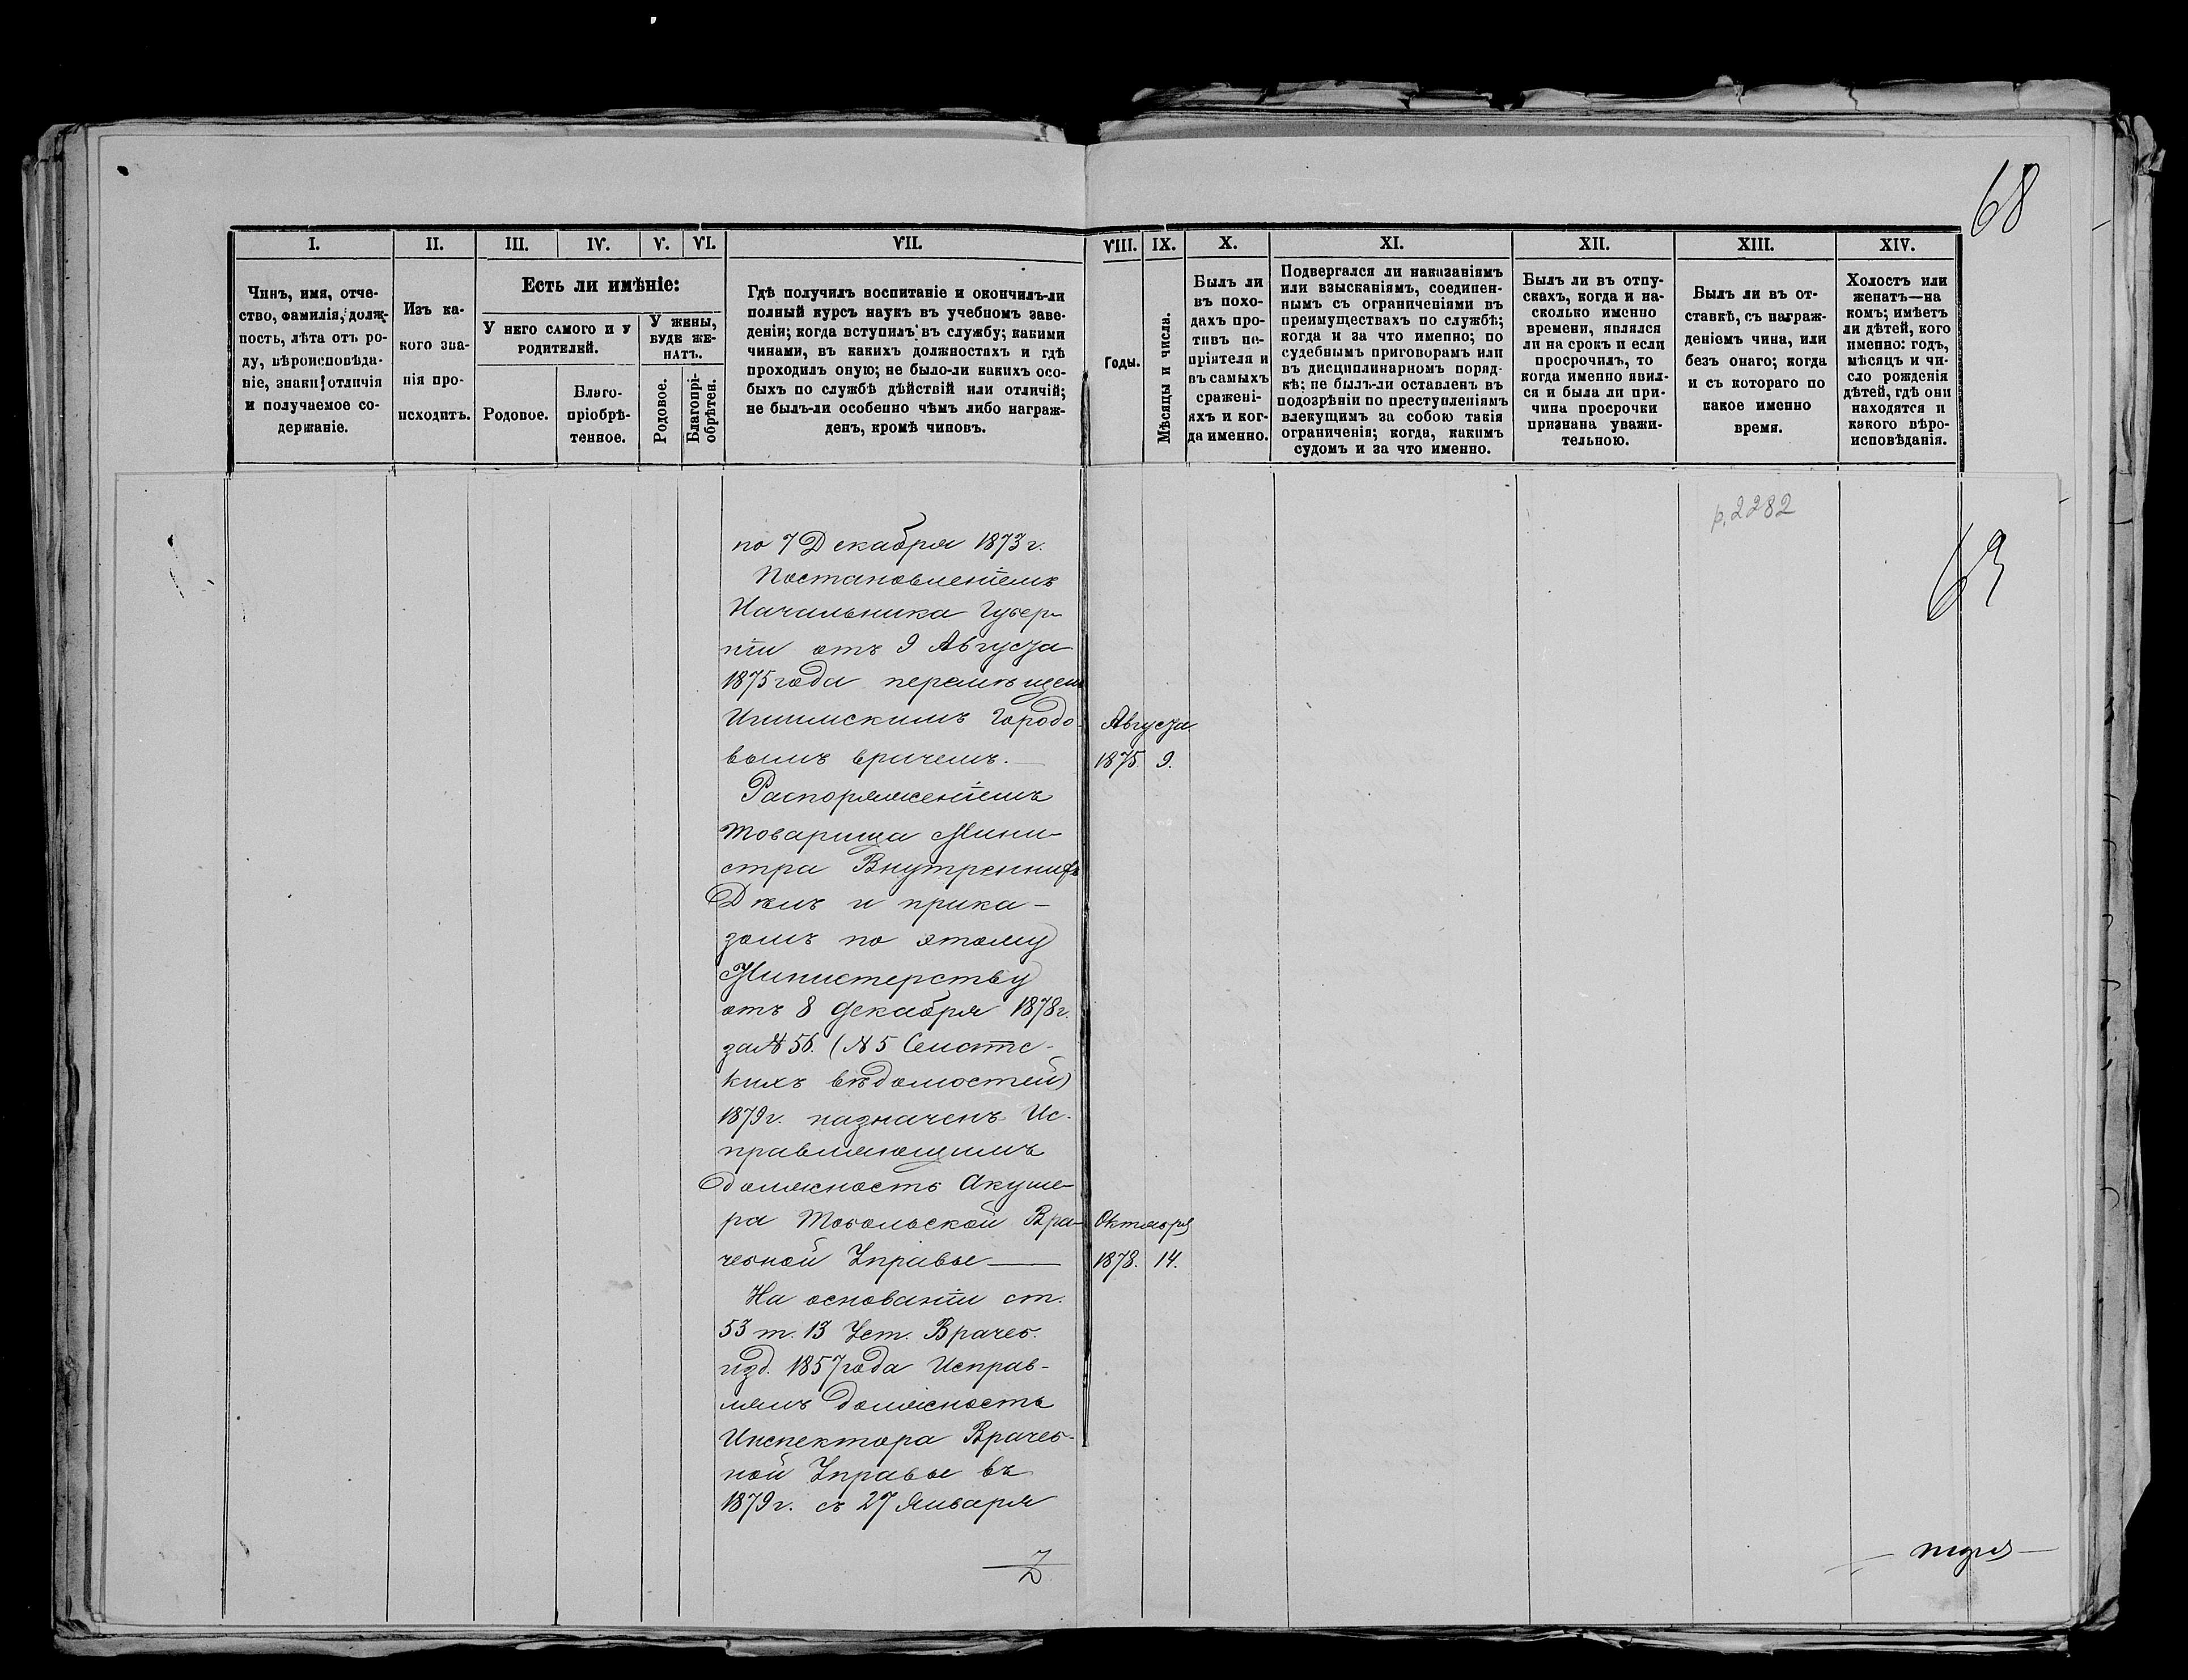 68
I.
II.
III.
IV.
V.
VI.
VII.
VIII.
IX.
X.
XI.
XII.
XIII.
XIV.
Чинъ, имя, отче-
ство, фамилія, долж-
ность, лѣта отъ ро-
ду, вѣроисповѣда-
ніе, знаки отличія
и получаемое со-
держаніе.
Изъ ка-
кого зва-
нія про-
исходитъ.
Есть ли имѣніе:
У него самого и у
родителей.
У жены,
буде же-
натъ.
Родовое.
Благо-
пріобрѣ-
тенное.
Родовое.
Благопрі-
обрѣтен.
Гдѣ получилъ воспитаніе и окончилъ-ли
полный курсъ наукъ въ учебномъ заве-
деніи; когда вступилъ въ службу; какими
чинами, въ какихъ должностяхъ и гдѣ
проходилъ оную; не было-ли какихъ осо-
быхъ по службѣ дѣйствій или отличій;
не былъ-ли особенно чѣмъ либо награж-
денъ, кромѣ чиновъ.
Годы.
Мѣсяцы и числа.
Былъ ли
въ похо-
дахъ про-
тивъ не-
пріятеля и
въ самыхъ
сражені-
яхъ и ког-
да именно.
Подвергался ли наказаніямъ
или взысканіямъ, соединен-
нымъ съ ограниченіями въ
преимуществахъ по службѣ;
когда и за что именно; по
судебнымъ приговорамъ или
въ дисциплинарномъ поряд-
кѣ; не былъ-ли оставленъ въ
подозрѣніи по преступленіямъ
влекущимъ за собою такія
ограниченія; когда, какимъ
судомъ и за что именно.
Былъ ли въ отпу-
скахъ, когда и на-
сколько именно
времени, являлся
ли на срокъ и если
просрочилъ, то
когда именно явил-
ся и была ли при-
чина просрочки
признана уважи-
тельною.
Былъ ли въ от-
ставкѣ, съ награж-
деніемъ чина, или
безъ онаго; когда
и съ котораго по
какое именно
время.
Холостъ или
женатъ—на
комъ; имѣетъ
ли дѣтей, кого
именно: годъ,
мѣсяцъ и чи-
сло рожденія
дѣтей, гдѣ они
находятся и
какого вѣро-
исповѣданія.
р. 2282
69
по 7 Декабря 1873 г.
Постановленіемъ
Начальника Губер-
ніи отъ 9 Августа
1875 года перемѣщенъ
Ишимскимъ Городо-
вымъ врачемъ.
Августа
1875. 9.
Распоряженіемъ
Товарища Мини-
стра Внутреннихъ
Дѣлъ и прика-
зомъ по этому
Министерству
отъ 8 Декабря 1878 г.
за № 56. (№ 5 Сенатс-
кихъ вѣдомостей)
1879 г. назначенъ Ис-
правляющимъ
должность Акуше-
ра Тобольской Вра-
чебной Управы
Октября
1878. 14.
На основаніи ст.
53 т. 13 Уст. Врачеб.
изд. 1857 года Исправ-
лялъ должность
Инспектора Врачеб-
ной Управы въ
1879 г. съ 27 Января